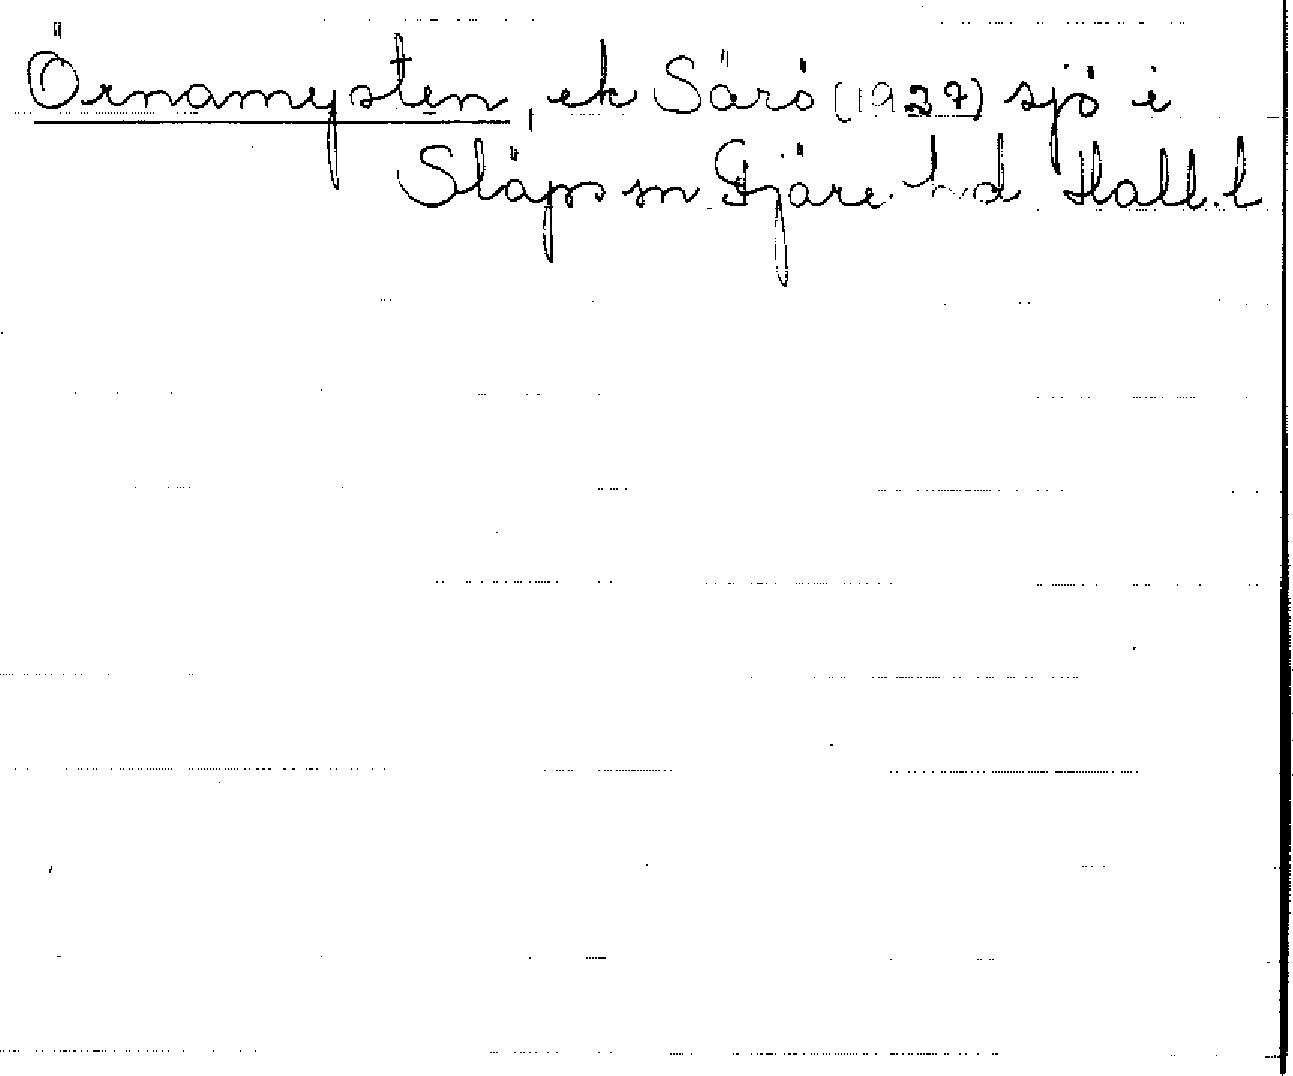 Örnamysten, ek Särö (1927) sjö i
Släps sn Fjäre hd Hall. l